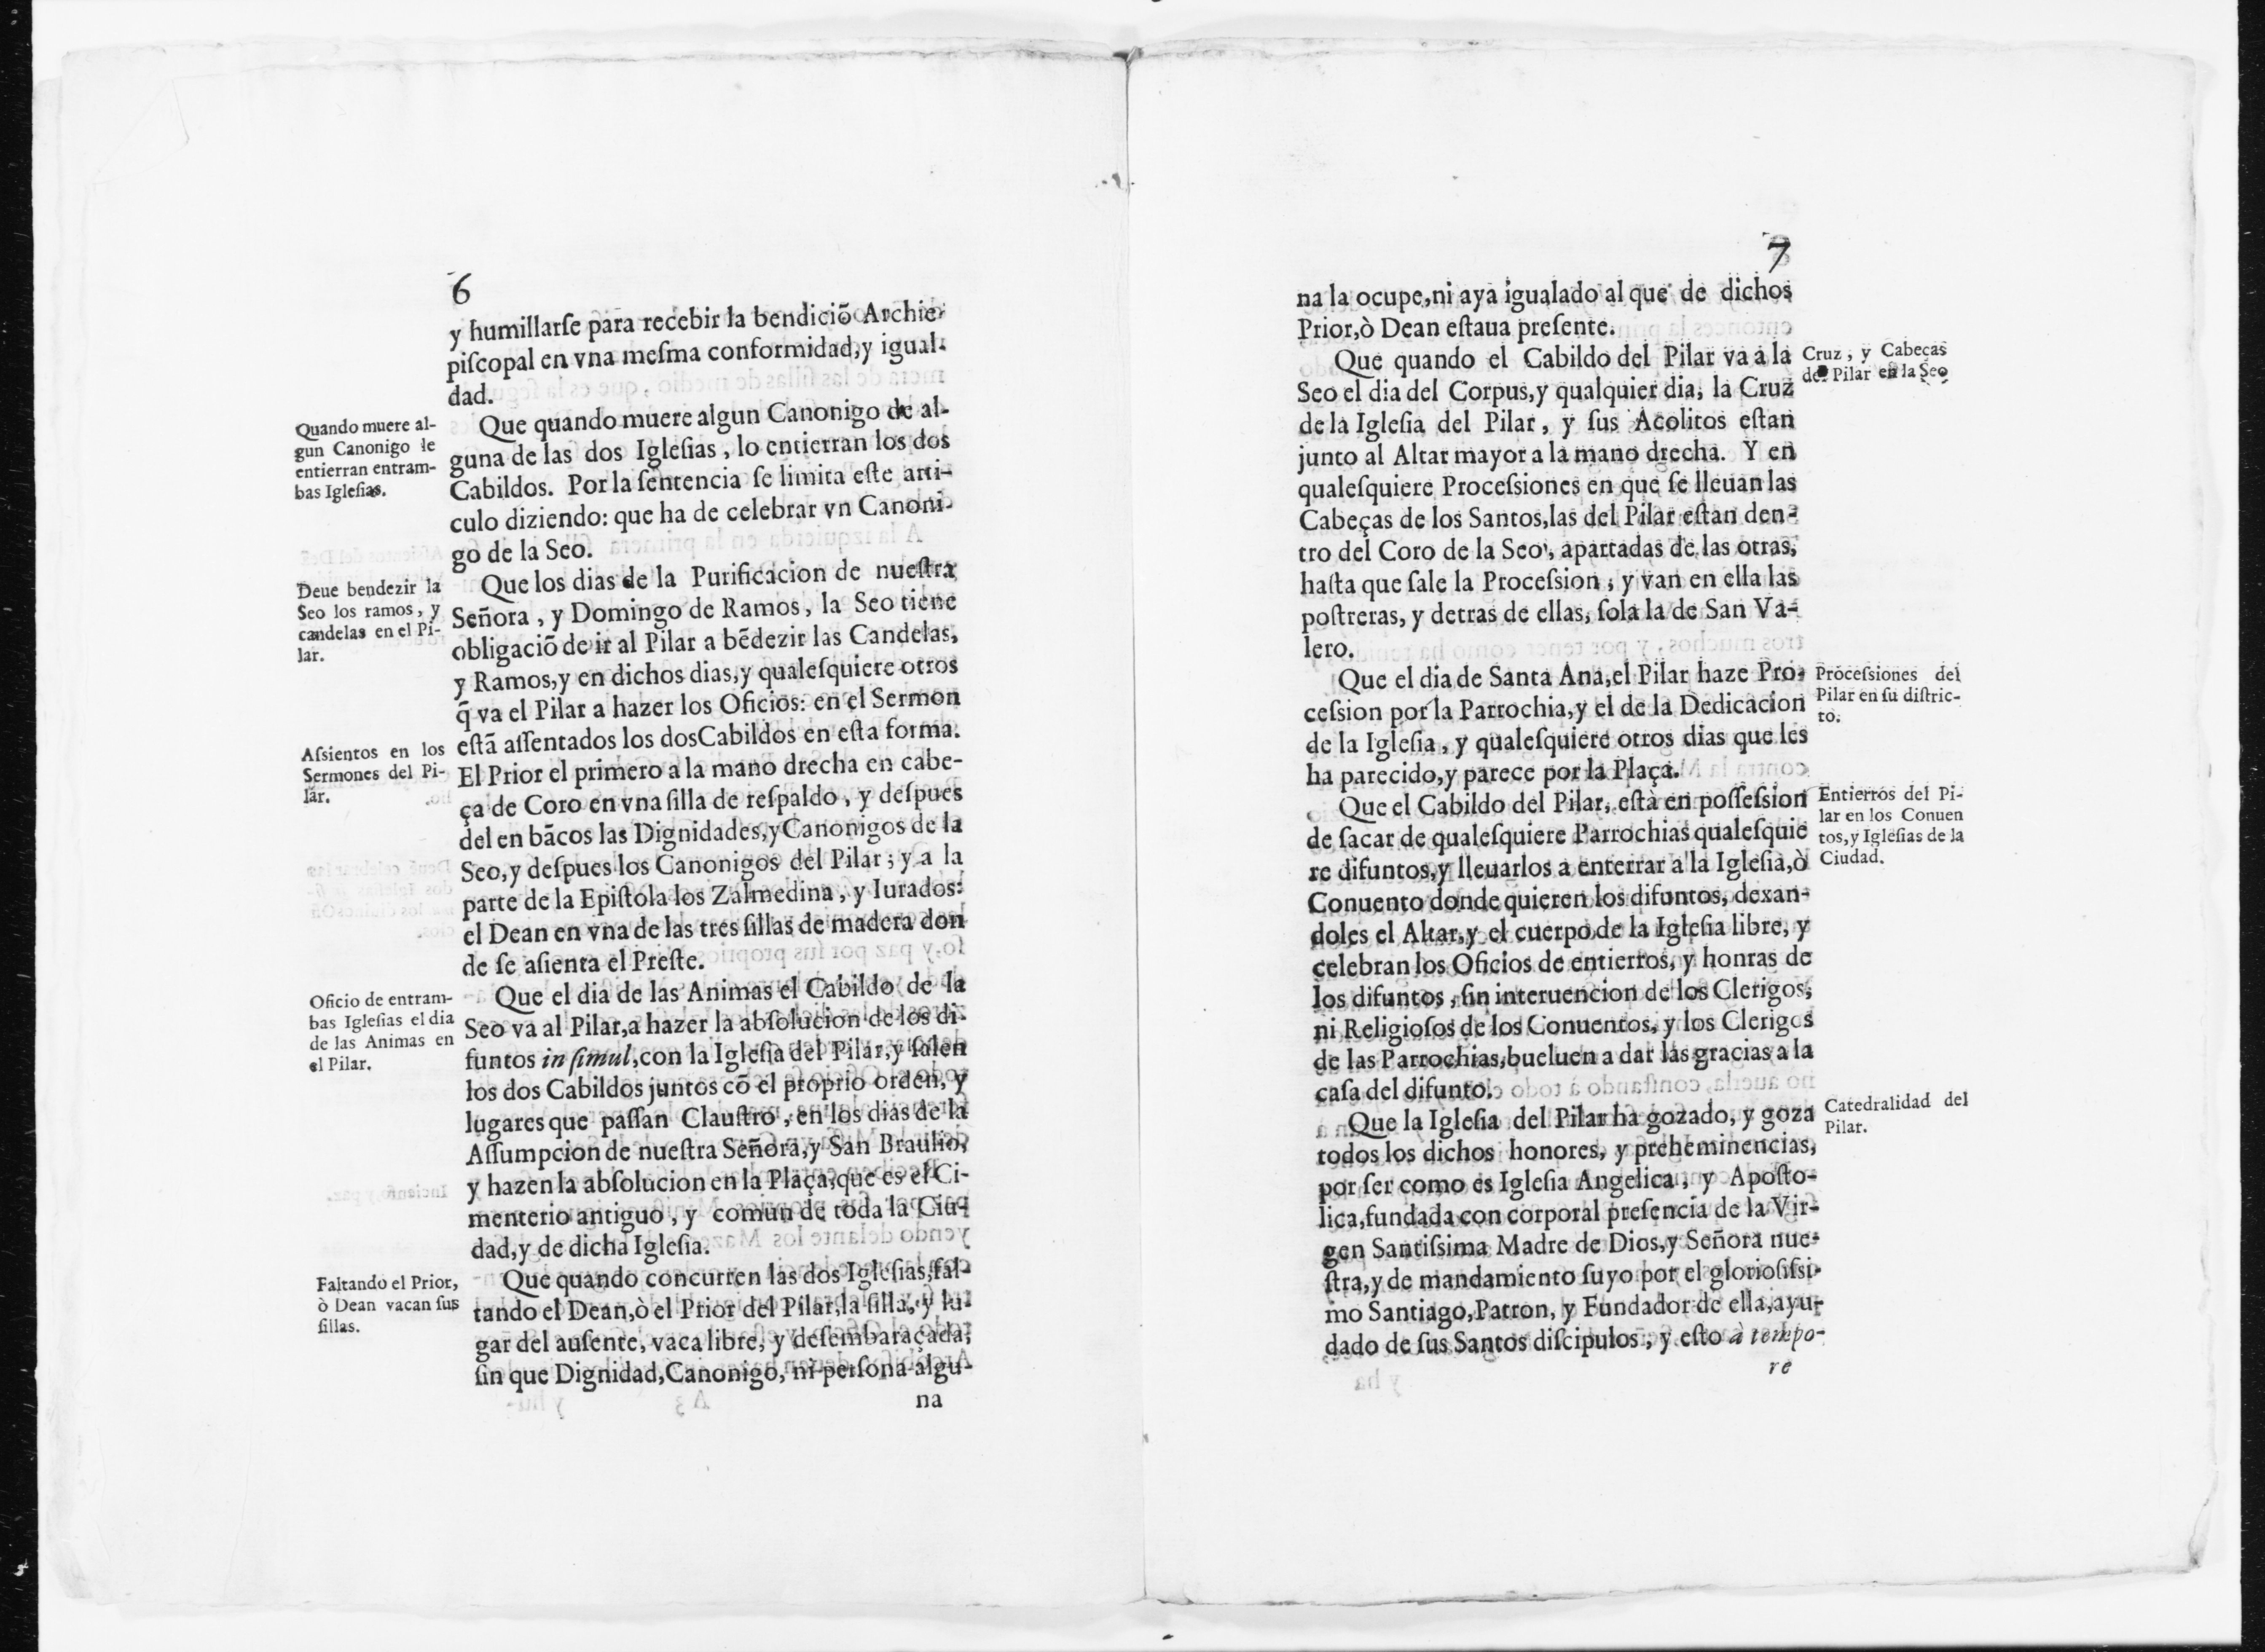 6
y humillarſe para recebir la bendiciõ Archie-
piſcopal en vna meſma conformidad, y igual-
dad.
Quando muere al-
gun Canonigo le
entierran entram-
bas Igleſias.
Que quando muere algun Canonigo de al-
guna de las dos Igleſias, lo entierran los dos
Cabildos. Por la ſentencia ſe limita eſte arti-
culo diziendo: que ha de celebrar vn Canoni-
go de la Seo.
Deue bendezir la
Seo los ramos, y
candelas en el Pi-
lar.
Que los dias de la Purificacion de nueſtra
Señora, y Domingo de Ramos, la Seo tiene
obligaciõ de ir al Pilar a bẽdezir las Candelas,
y Ramos, y en dichos dias, y qualeſquiere otros
q̃ va el Pilar a hazer los Oficios: en el Sermon
Aſsientos en los
Sermones del Pi-
lar.
eſtã aſſentados los dos Cabildos en eſta forma.
El Prior el primero a la mano drecha en cabe-
ça de Coro en vna ſilla de reſpaldo, y deſpues
del en bãcos las Dignidades, y Canonigos de la
Seo, y deſpues los Canonigos del Pilar; y a la
parte de la Epiſtola los Zalmedina, y Iurados:
el Dean en vna de las tres ſillas de madera don
de ſe aſienta el Preſte.
Oficio de entram-
bas Igleſias el dia
de las Animas en
el Pilar.
Que el dia de las Animas el Cabildo de la
Seo va al Pilar, a hazer la abſolucion de los di-
funtos in ſimul, con la Igleſia del Pilar, y ſalen
los dos Cabildos juntos cõ el proprio orden, y
lugares que paſſan Clauſtro, en los dias de la
Aſſumpcion de nueſtra Señora, y San Braulio,
y hazen la abſolucion en la Plaça, que es el Ci-
menterio antiguo, y comun de toda la Ciu-
dad, y de dicha Igleſia.
Faltando el Prior,
ò Dean vacan ſus
ſillas.
Que quando concurren las dos Igleſias, fal-
tando el Dean, ò el Prior del Pilar, la ſilla, y lu-
gar del auſente, vaca libre, y deſembaraçada,
ſin que Dignidad, Canonigo, ni perſona algu-
na
7
na la ocupe, ni aya igualado al que de dichos
Prior, ò Dean eſtaua preſente.
Cruz, y Cabeças
del Pilar en la Seo
Que quando el Cabildo del Pilar va à la
Seo el dia del Corpus, y qualquier dia, la Cruz
de la Igleſia del Pilar, y ſus Acolitos eſtan
junto al Altar mayor a la mano drecha. Y en
qualeſquiere Proceſsiones en que ſe lleuan las
Cabeças de los Santos, las del Pilar eſtan den-
tro del Coro de la Seo, apartadas de las otras,
haſta que ſale la Proceſsion, y van en ella las
poſtreras, y detras de ellas, ſola la de San Va-
lero.
Proceſsiones del
Pilar en ſu diſtric-
to.
Que el dia de Santa Ana, el Pilar haze Pro-
ceſsion por la Parrochia, y el de la Dedicacion
de la Igleſia, y qualeſquiere otros dias que les
ha parecido, y parece por la Plaça.
Entierros del Pi-
lar en los Conuen
tos, y Igleſias de la
Ciudad.
Que el Cabildo del Pilar, eſtà en poſſeſsion
de ſacar de qualeſquiere Parrochias qualeſquie
re difuntos, y lleuarlos a enterrar a la Igleſia, ò
Conuento donde quieren los difuntos, dexan-
doles el Altar, y el cuerpo de la Igleſia libre, y
celebran los Oficios de entierros, y honras de
los difuntos, ſin interuencion de los Clerigos,
ni Religioſos de los Conuentos, y los Clerigos
de las Parrochias, bueluen a dar las gracias a la
caſa del difunto.
Catedralidad del
Pilar.
Que la Igleſia del Pilar ha gozado, y goza
todos los dichos honores, y preheminencias,
por ſer como es Igleſia Angelica, y Apoſto-
lica, fundada con corporal preſencia de la Vir-
gen Santiſsima Madre de Dios, y Señora nue-
ſtra, y de mandamiento ſuyo por el glorioſiſsi-
mo Santiago, Patron, y Fundador de ella, ayu-
dado de ſus Santos diſcipulos, y eſto à tempo-
re